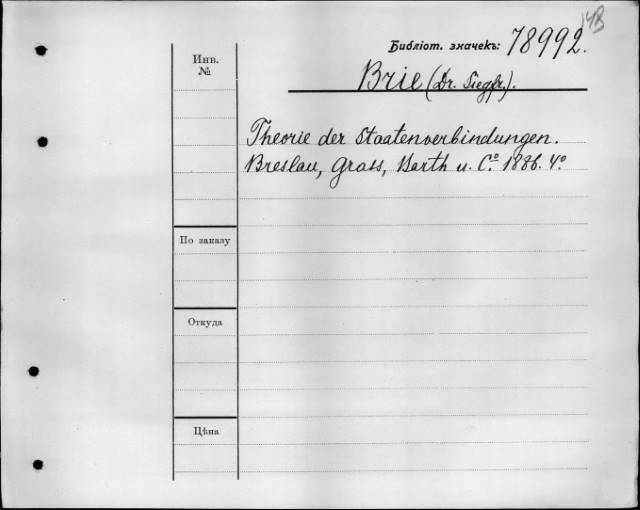 Библіот. значекъ: 78992.
Инв.
№
Brie (Dr. Siegfr.).
Theorie der Staatenverbindungen.
Breslau, Grass, Barth u. Cº 1886. 4º
По заказу
Откуда
Цѣна